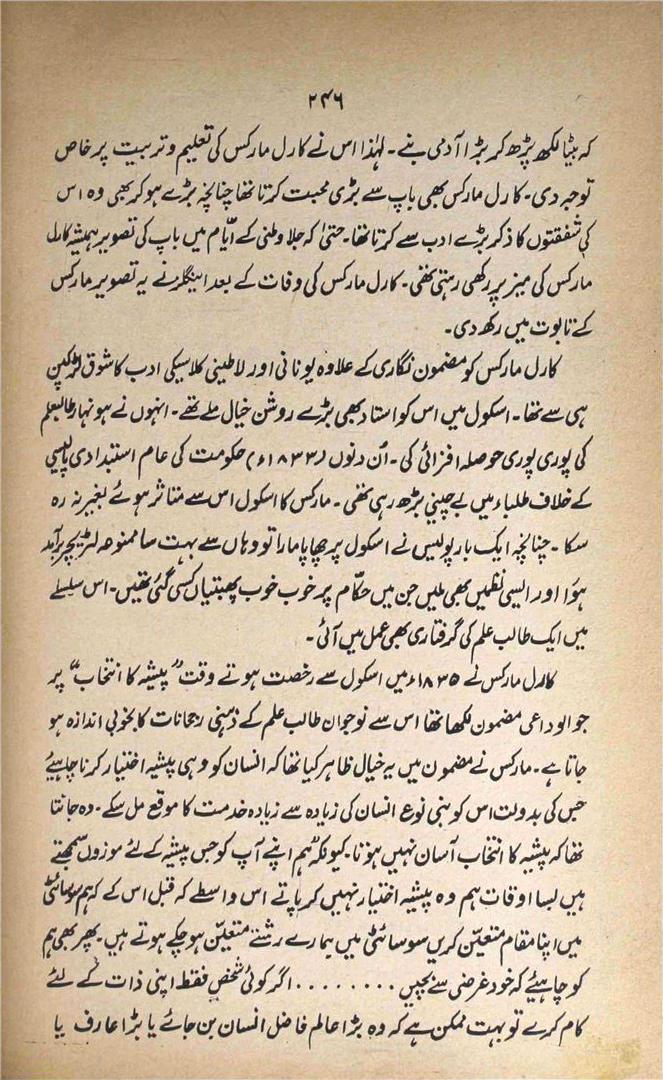 ۲۴۶
کہ بیٹا لکھ پڑھ کر بڑا آدمی بنے۔ لہٰذا اس نے کارل مارکس کی تعلیم و تربیت پر خاص
توجہ دی۔ کارل مارکس بھی باپ سے بڑی محبت کرتا تھا چنانچہ بڑے ہو کر بھی وہ اس
کی شفقتوں کا ذکر بڑے ادب سے کرتا تھا۔ حتیٰ کہ جلا وطنی کے ایّام میں باپ کی تصویر ہمیشہ کارل
مارکس کی میز پر رکھی رہتی تھی۔ کارل مارکس کی وفات کے بعد اینگلز نے یہ تصویر مارکس
کے تابوت میں رکھ دی۔
کارل مارکس کو مضمون نگاری کے علاوہ یونانی اور لاطینی کلاسیکی ادب کا شوق لڑکپن
ہی سے تھا۔ اسکول میں اس کو استاد بھی بڑے روشن خیال ملے تھے۔ انہوں نے ہونہار طالبعلم
کی پوری پوری حوصلہ افزائی کی۔ اُن دنوں (۱۸۳۳ء) حکومت کی عام استبدادی پالیسی
کے خلاف طلباء میں بے چینی بڑھ رہی تھی۔ مارکس کا اسکول اس سے متاثر ہوئے بغیر نہ رہ
سکا۔ چنانچہ ایک بار پولیس نے اسکول پر چھاپا مارا تو وہاں سے بہت سا ممنوعہ لٹریچر برآمد
ہوٴا اور ایسی نظمیں بھی ملیں جن میں حکّام پر خوب خوب پھبتیاں کسی گئی تھیں۔ اس سلسلے
میں ایک طالب علم کی گرفتاری بھی عمل میں آئی۔
کارل مارکس نے ۱۸۳۵ء میں اسکول سے رخصت ہوتے وقت ”پیشہ کا انتخاب“ پر
جو الوداعی مضمون لکھا تھا اس سے نوجوان طالب علم کے ذہنی رجحانات کا بخوبی اندازہ ہو
جاتا ہے۔ مارکس نے مضمون میں یہ خیال ظاہر کیا تھا کہ انسان کو وہی پیشہ اختیار کرنا چاہیئے
جس کی بدولت اس کو بنی نوع انسان کی زیادہ سے زیادہ خدمت کا موقع مل سکے۔ وہ جانتا
تھا کہ پیشہ کا انتخاب آسان نہیں ہوتا۔ کیونکہ ”ہم اپنے آپ کو جس پیشہ کے لئے موزوں سمجھتے
ہیں بسا اوقات ہم وہ پیشہ اختیار نہیں کر پاتے اس واسطے کہ قبل اس کے کہ ہم سوسائٹی
میں اپنا مقام متعیّن کریں سوسائٹی میں ہمارے رشتے متعیّن ہو چکے ہوتے ہیں۔ پھر بھی ہم
کو چاہیئے کہ خود غرضی سے بچیں ........ اگر کوئی شخص فقط اپنی ذات کے لئے
کام کرے تو بہت ممکن ہے کہ وہ بڑا عالم فاضل انسان بن جائے یا بڑا عارف یا